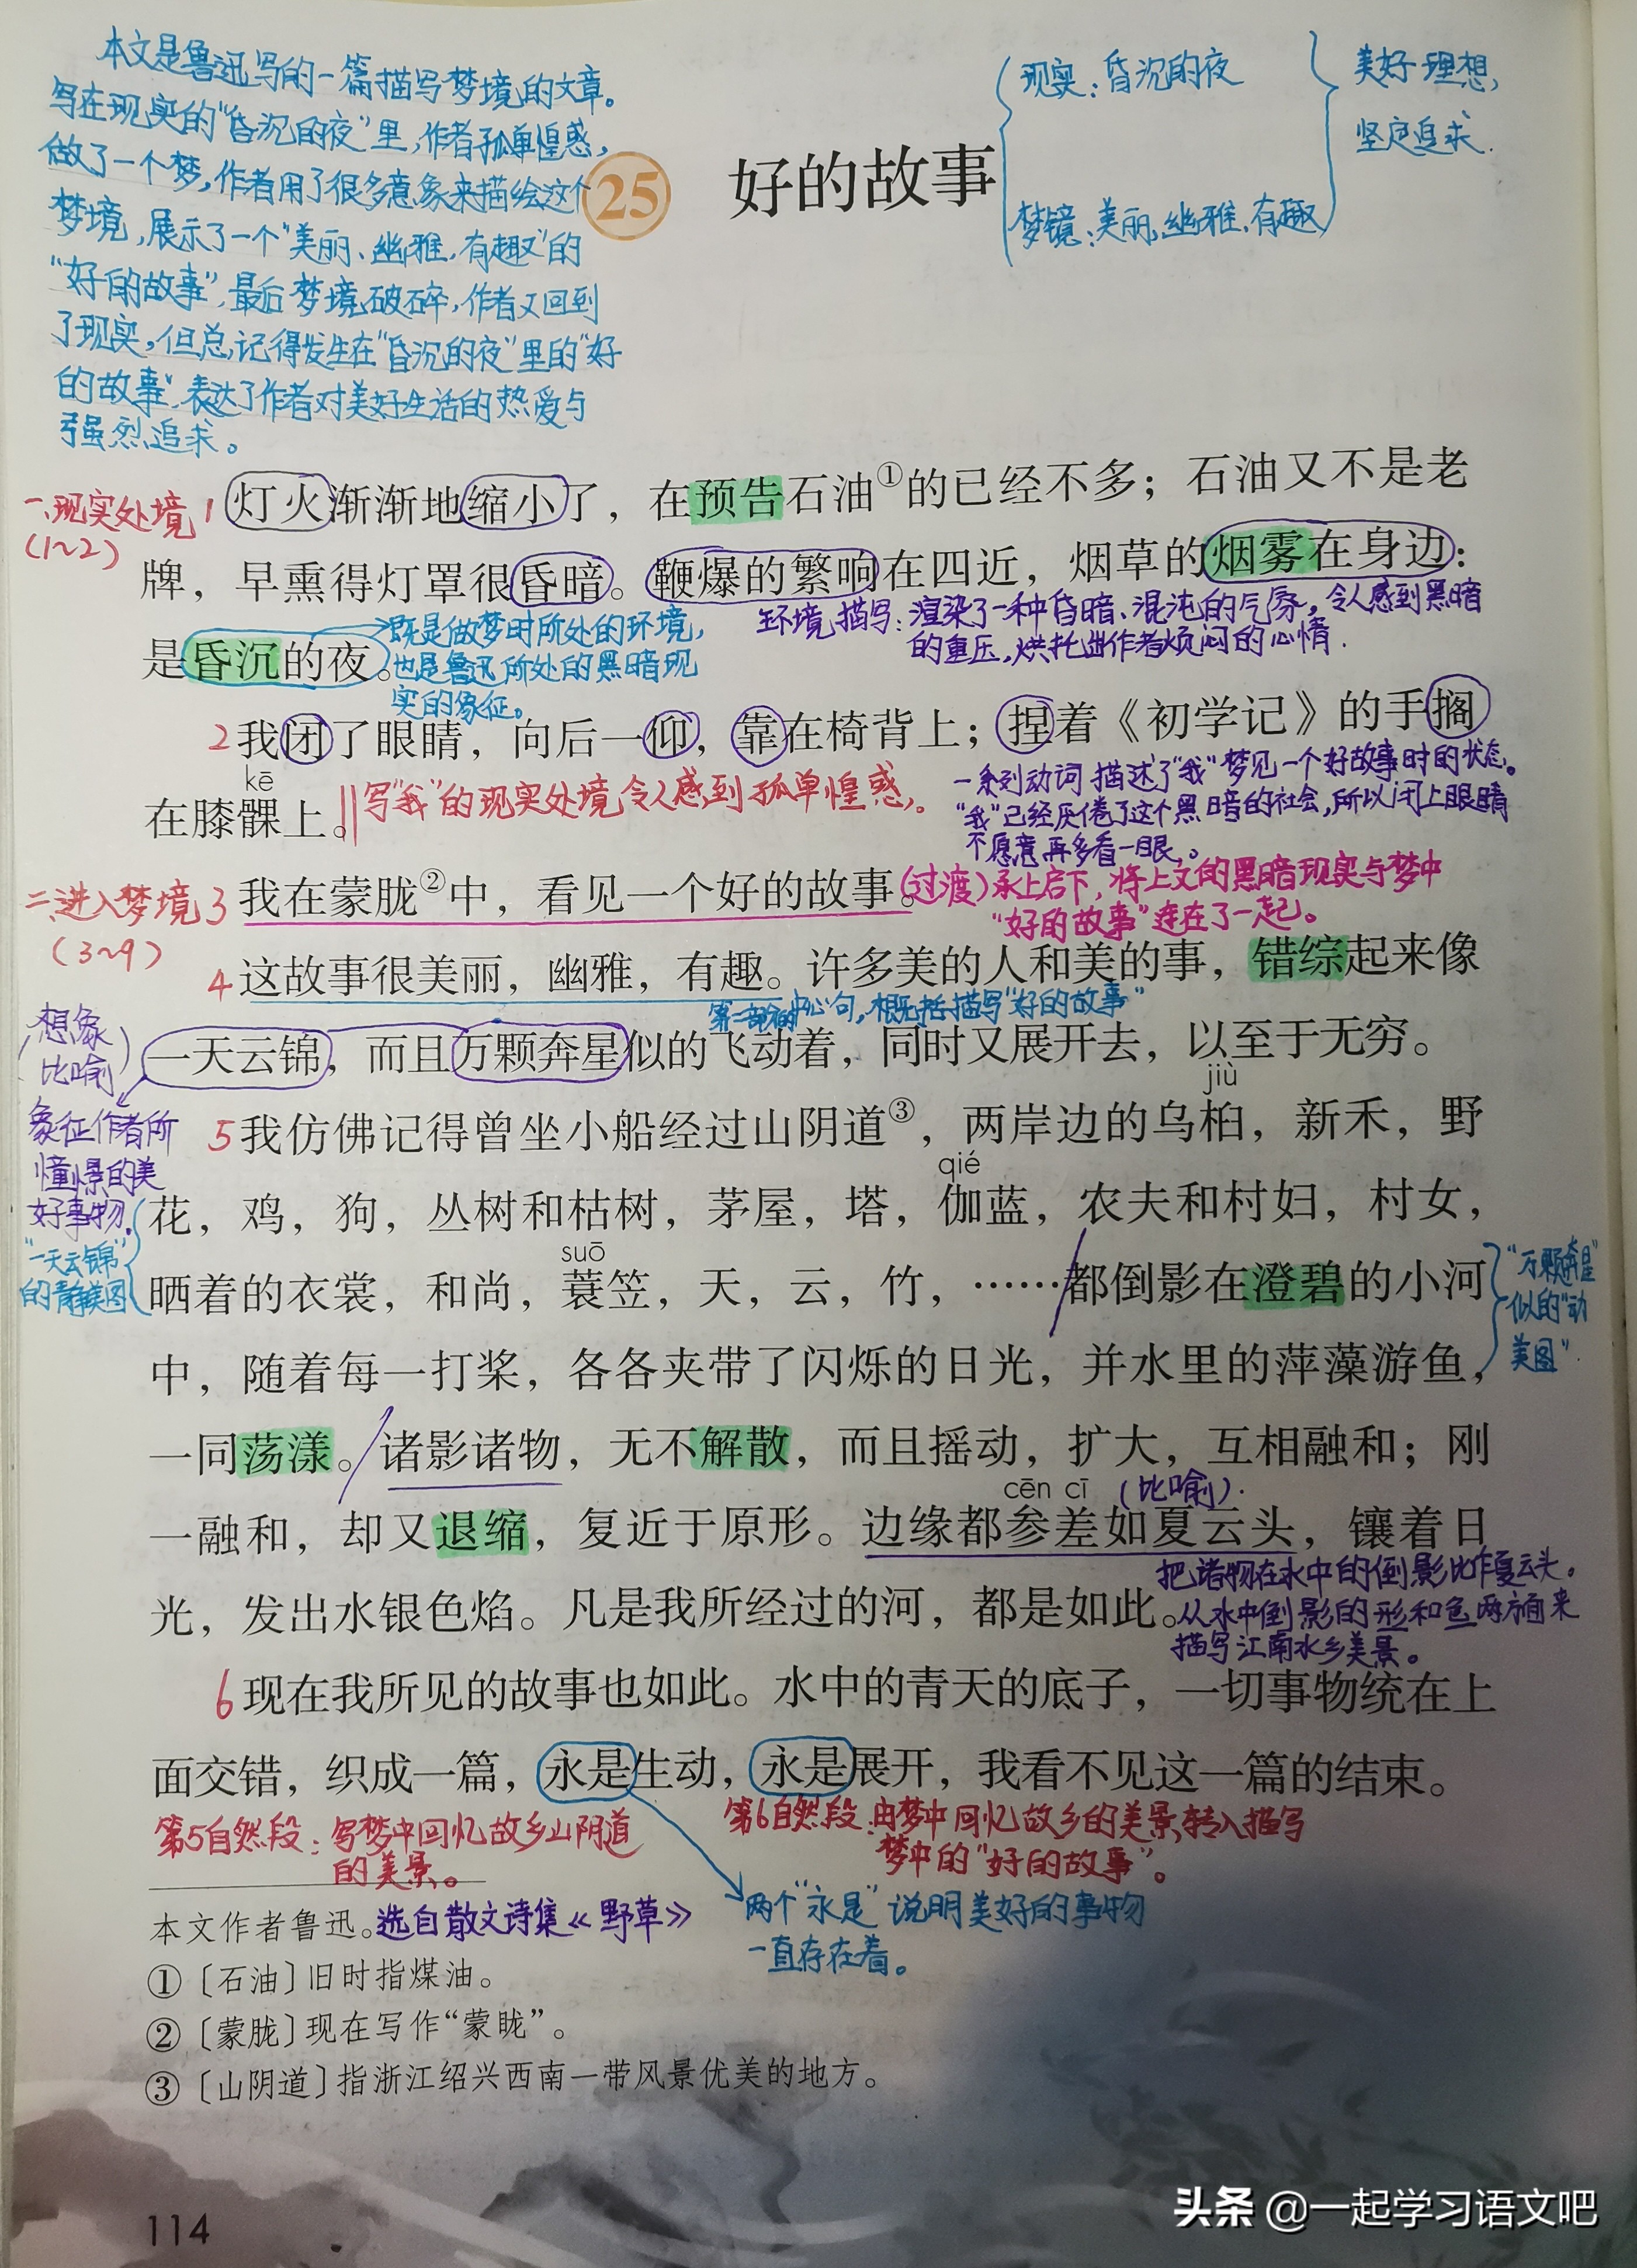 本文是鲁迅写的一篇描写梦境的文章。
写在现实的“昏沉的夜”里,作者孤单惶惑,
做了一个梦,作者用了很多意象来描绘这个
梦境,展示了一个“美丽、幽雅、有趣”的
“好的故事”,最后梦境破碎,作者又回到
了现实,但总记得发生在“昏沉的夜”里的“好
的故事”,表达了作者对美好生活的热爱与
强烈追求。
25 好的故事
现实:昏沉的夜
梦镜:美丽,幽雅,有趣
美好理想,
坚定追求.
一、现实处境
(1~2)
1 灯火渐渐地缩小了,在预告石油①的已经不多;石油又不是老
牌,早熏得灯罩很昏暗。鞭爆的繁响在四近,烟草的烟雾在身边:
环境描写:渲染了一种昏暗、混沌的气氛,令人感到黑暗
的重压,烘托出作者烦闷的心情.
是昏沉的夜。
既是做梦时所处的环境,
也是鲁迅所处的黑暗现
实的象征。
2 我闭了眼睛,向后一仰,靠在椅背上;捏着《初学记》的手搁
kē
在膝髁上。
写“我”的现实处境令人感到孤单惶惑。
一系列动词描述了“我”梦见一个好故事时的状态。
“我”已经厌倦了这个黑暗的社会,所以闭上眼睛
不愿意再多看一眼。
二、进入梦境
(3~9)
3 我在蒙胧②中,看见一个好的故事。
(过渡)承上启下,将上文的黑暗现实与梦中
“好的故事”连在了一起。
4 这故事很美丽,幽雅,有趣。许多美的人和美的事,错综起来像
第二部分的中心句,概括描写“好的故事”
一天云锦,而且万颗奔星似的飞动着,同时又展开去,以至于无穷。
(想象
比喻)
象征作者所
憧憬的美
好事物.
“一天云锦”
的静美图
jiù
5 我仿佛记得曾坐小船经过山阴道③,两岸边的乌桕,新禾,野
qié
花,鸡,狗,丛树和枯树,茅屋,塔,伽蓝,农夫和村妇,村女,
suō
晒着的衣裳,和尚,蓑笠,天,云,竹,……都倒影在澄碧的小河
“万颗奔星”
似的“动
美图”.
中,随着每一打桨,各各夹带了闪烁的日光,并水里的萍藻游鱼,
一同荡漾。诸影诸物,无不解散,而且摇动,扩大,互相融和;刚
cēn cī (比喻).
一融和,却又退缩,复近于原形。边缘都参差如夏云头,镶着日
把诸物在水中的倒影比作夏云头。
光,发出水银色焰。凡是我所经过的河,都是如此。
从水中倒影的形和色两方面来
描写江南水乡美景。
6 现在我所见的故事也如此。水中的青天的底子,一切事物统在上
面交错,织成一篇,永是生动,永是展开,我看不见这一篇的结束。
第5自然段:写梦中回忆故乡山阴道
的美景。
第6自然段:由梦中回忆故乡的美景,转入描写
梦中的“好的故事”。
两个“永是”说明美好的事物
一直存在着。
本文作者鲁迅。选自散文诗集《野草》
①〔石油〕旧时指煤油。
②〔蒙胧〕现在写作“蒙眬”。
③〔山阴道〕指浙江绍兴西南一带风景优美的地方。
114
头条 @一起学习语文吧